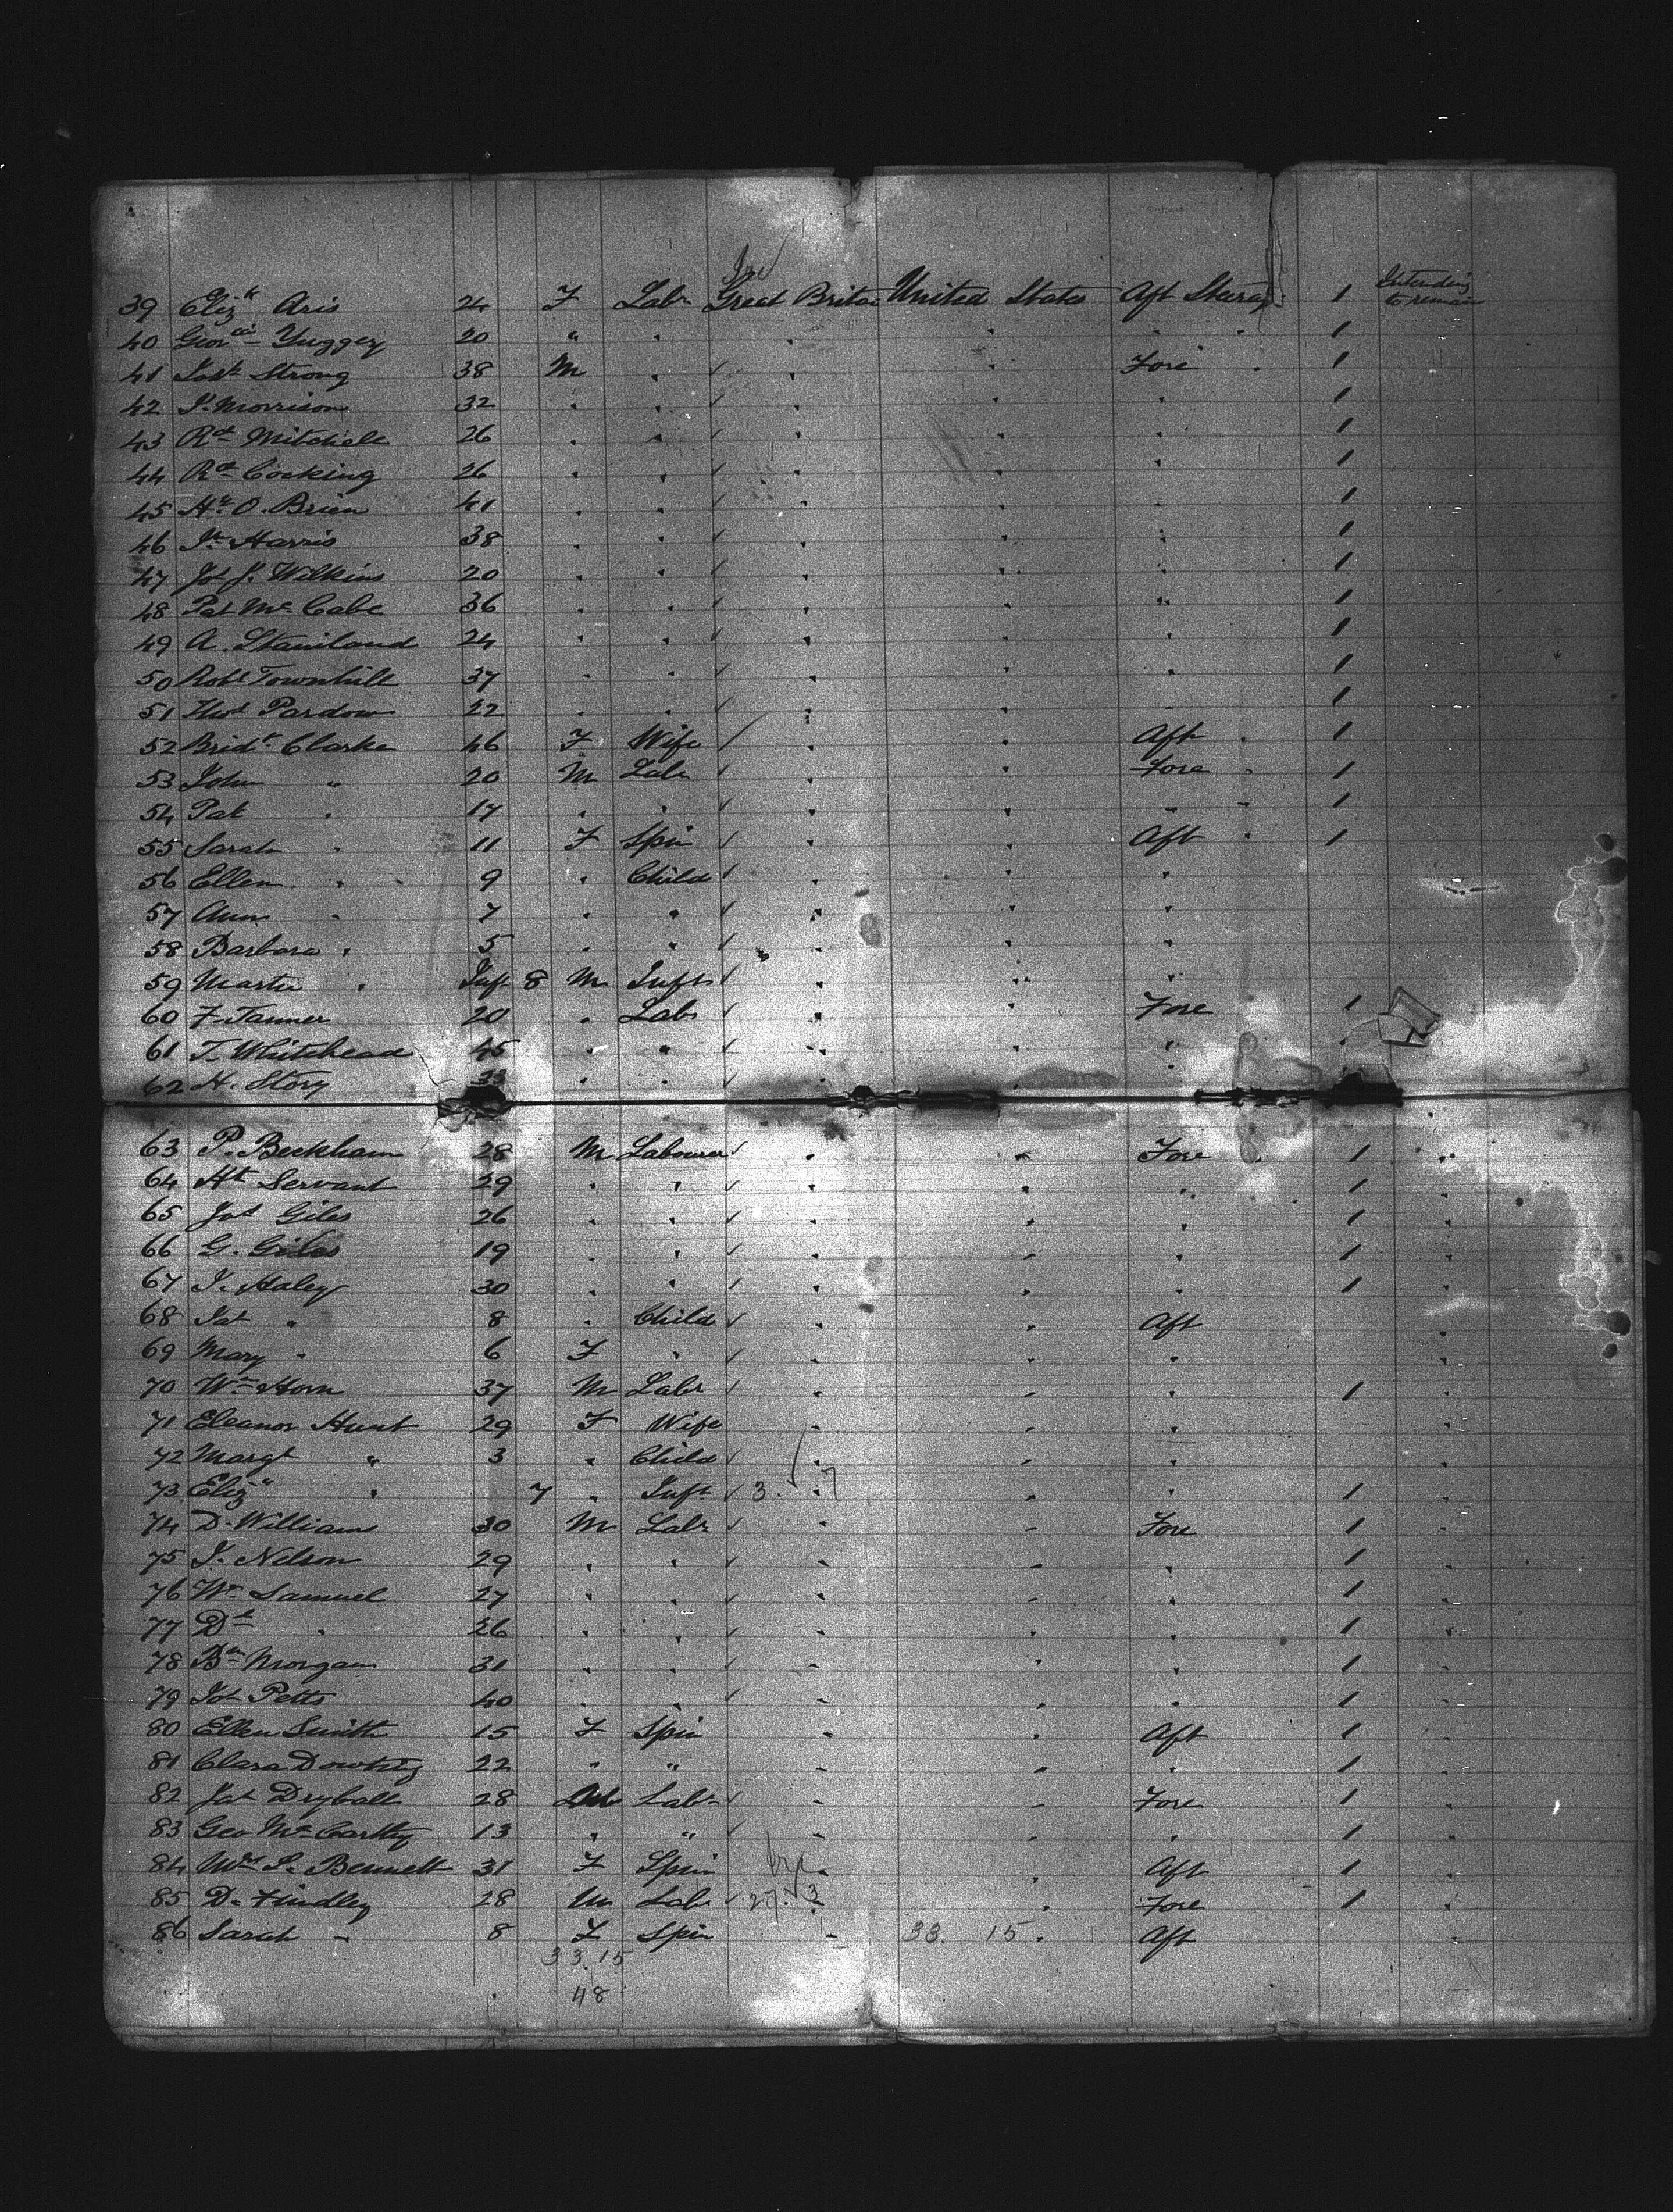 Ire
39 Eliz'h Aris 24 F Labr Great Britai United States Aft Steerag: 1 Intending to remain
40 Geor - Yuggey 20 " " " " " 1
41 Josh Strong 38 M " " " Fore " 1
42 J. Morrison 32 " " " " " 1
43 Rd Mitchell 26 " " " " " 1
44 Rd Cocking 26 " " " " " 1
45 Hy O. Brien 41 " " " " " 1
46 Jn Harris 38 " " " " " 1
47 Jos J. Wilkins 20 " " " " " 1
48 Pat Mc Cabe 36 " " " " " 1
49 A. Staniland 24 " " " " " 1
50 Robt Townhill 37 " " " " 1
51 Thos Pardow 22 " " " " 1
52 Bridt Clarke 46 F Wife " " Aft " 1
53 John " 20 M Labr " " Fore " 1
54 Pat " 17 " " " " " " 1
55 Sarah " 11 F Spin " " Aft " 1
56 Ellen " 9 " Child " " "
57 Ann " 7 " " " " "
58 Barbara " 5 " " " " "
59 Martin " Inft 8 M Inft " " "
60 F. Tanner 20 " Labr " " Fore 1
61 T. Whitehead 45 " " " " "
62 H. Story 33 " " " "
63 P. Beckham 28 M Labourer " " Fore 1 "
64 Hy Servant 29 " " " " " 1 "
65 Jas Giles 26 " " " " " 1 "
66 G. Giles 19 " " " " " 1 "
67 J. Haley 30 " " " " " 1
68 Jas " 8 " Child " " Aft "
69 Mary " 6 F " " " " "
70 Wm Horn 37 M Labr " " " 1 "
71 Eleanor Hunt 29 F Wife " " " "
72 Margt " 3 " Child " " " "
73 Eliz " 7 " Inft 3. 7 " " 1 "
74 D. Williams 30 M Labr " " Fore 1 "
75 J. Nelson 29 " " " " " 1 "
76 Wm Samuel 27 " " " " " 1 "
77 Dd " 26 " " " " " 1 "
78 Bn Morgan 31 " " " " " 1 "
79 Jos Petts 40 " " " " " 1 "
80 Ellen Smith 15 F Spin " " Aft 1 "
81 Clara Dowting 22 " " " " " 1 "
82 Jas Dryball 28 M Labr " " Fore 1 "
83 Geo Mc Carthy 13 " " " " 1 "
84 Mrs S. Bennett 31 F Spin " " Aft 1 "
85 D. Findley 28 M Labr 27. 3 " Fore 1 "
86 Sarah " 8 F Spin " 33. 15 " Aft "
33.15
48